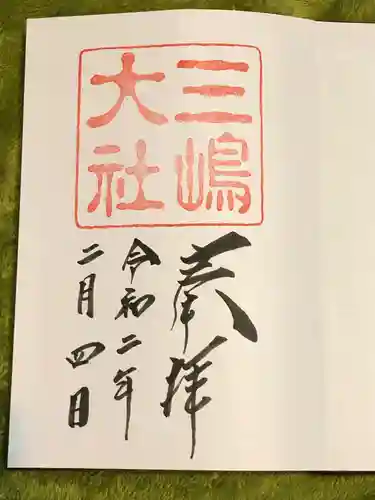 三嶋
大社
奉拝
令和二年
二月四日